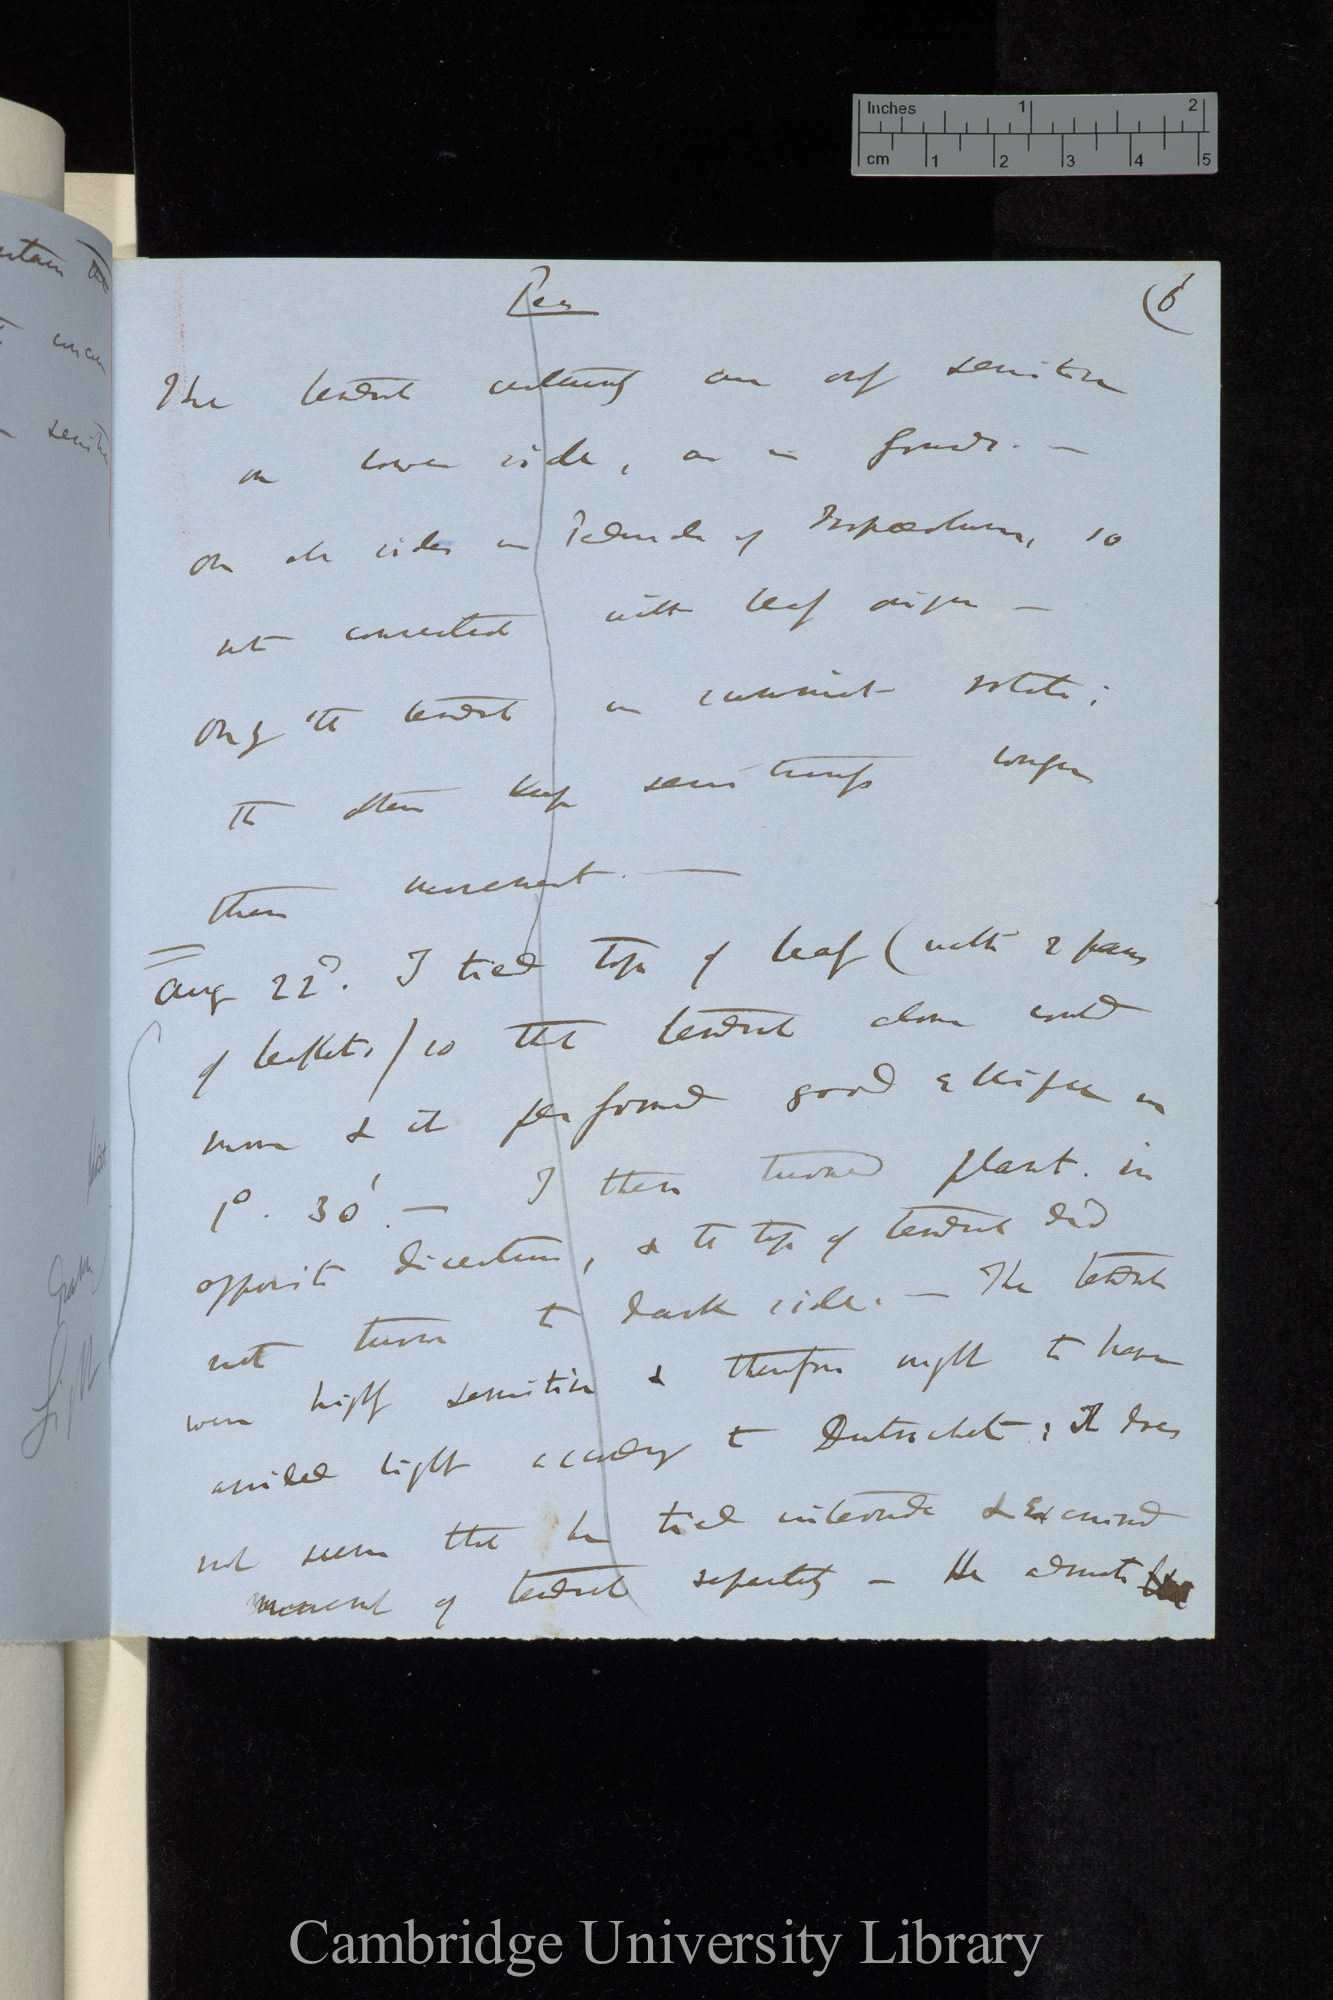 Inches 1 2
cm 1 2 3 4 5
Pea
(6
The tendril certainly are only sensitive
on lower side, as in Gourds. —
On all sides in Peduncle of Tropæolum, so
not connected with leaf origin —
Only the tendril in summit rotate;
the often keep longer
than movement. —
Aug 22d. I tied top of leaf (with 2 pairs
of leaflets) so that tendril alone could
move & it performed good ellipse in
1°. 30'. — I then turned plant in
opposite direction, & the top of tendril did
not turn to dark side. — The tendril
were highly sensitive & therefore ought to have
avoided light according to Dutrochet; it does
not seem that he tied internode & examined
movement of tendril separately — He admits
sensitive
Light
Cambridge University Library